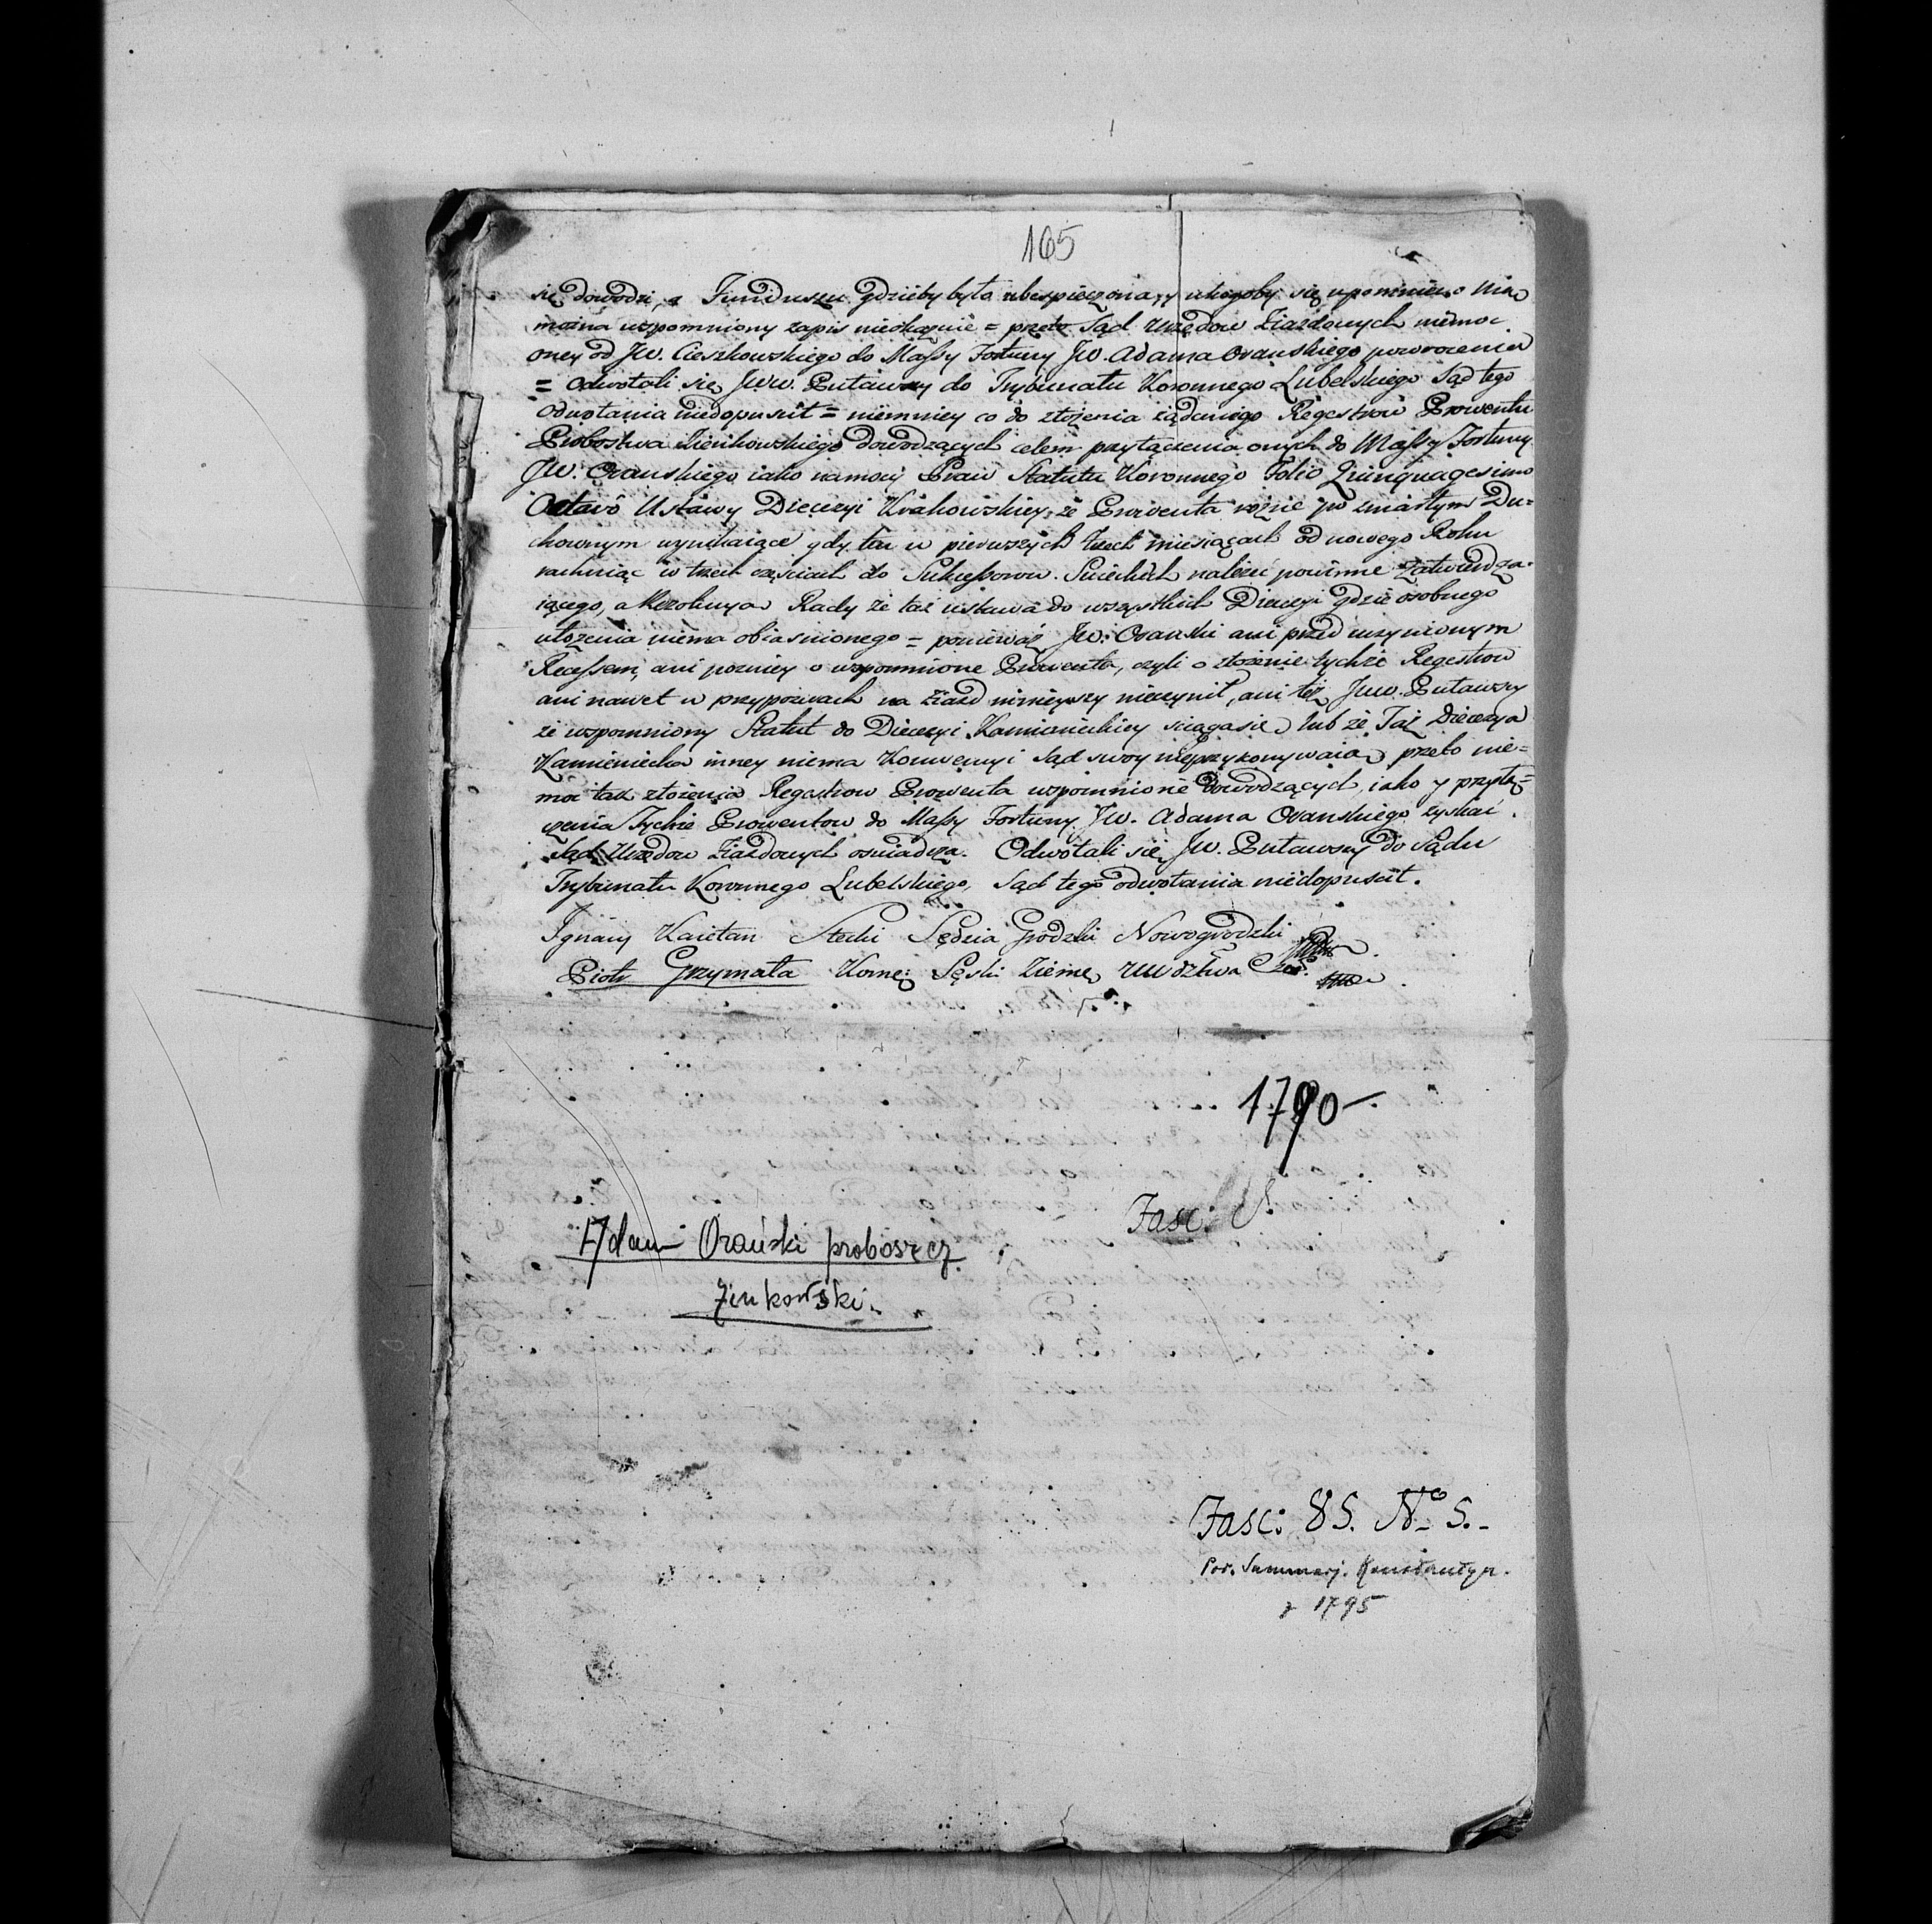 165
się dowodzi, z Funduszu gdzieby była ubespieczona, y ukogoby się upomnieć nie
można wspomniony zapis nieokazuie = przeto Sąd Urzędow Ziazdowych niemoc
oney od JW. Cieszkowskiego do Massy Fortuny JW. Adama Oranskiego powrocenia
= odwołali się JWW. Putawscy do Trybunału Koronnego Lubelskiego Sąd tego
odwołania niedopuścił = niemniey co do złożenia żądanego Regestrow Prowentu
Probostwa Zienkowskiego dowodzących celem przyłączenia onych do Massy Fortuny
JW. Oranskiego iako na mocy Praw Statutu Koronnego Folio Quinquagesimo
Octavo Ustawy Diecezyi Krakowskiey, że Prowenta rożnie po zmarłym Du=
chownym wynikaiące gdy ten w pierwszych trzech miesiącach od nowego Roku
rachuiąc w trzech częsciach do Sukcessorow Swieckich należeć powinne zatwierdza=
iącego, a Rezolucya Rady że taż ustawa do wszystkich Diecezyi gdzie osobnego
ułożenia niema obiasnionego = ponieważ JW. Oranski ani przed uczynionym
Recessem, ani pozniey o wspomnione Prowenta, czyli o złożenie tychże Regestrow
ani nawet w przypozwach na Ziazd ninieyszy nieczynił, ani też JWW. Putawscy
że wspomniony Statut do Diecezyi Kamienieckiey sciąga się lub że Taż Diecezya
Kamieniecka inney niema Konwencyi Sąd swoy nieprzykonywaią przeto nie=
moc tak złożenia Regestrow Prowenta wspomnione dowodzących, iako y przyłą=
czenia tychże Prowentow do Massy Fortuny JW. Adama Oranskiego zyskać
Sąd Urzędow Ziazdowych oswiadcza. Odwołali się JW. Putawscy do Sądu
Trybunału Koronnego Lubelskiego, Sąd tego odwołania niedopuścił.
Ignacy Kaietan Stecki Sędzia Grodzki Nowogrodzki
Piotr Grzymała Ziems
1790
Fasc:
Adam Orański proboszcz
Zinkowski.
Fasc: 85. No 5.-
Por. Summarj. Konstantyn.
z 1795